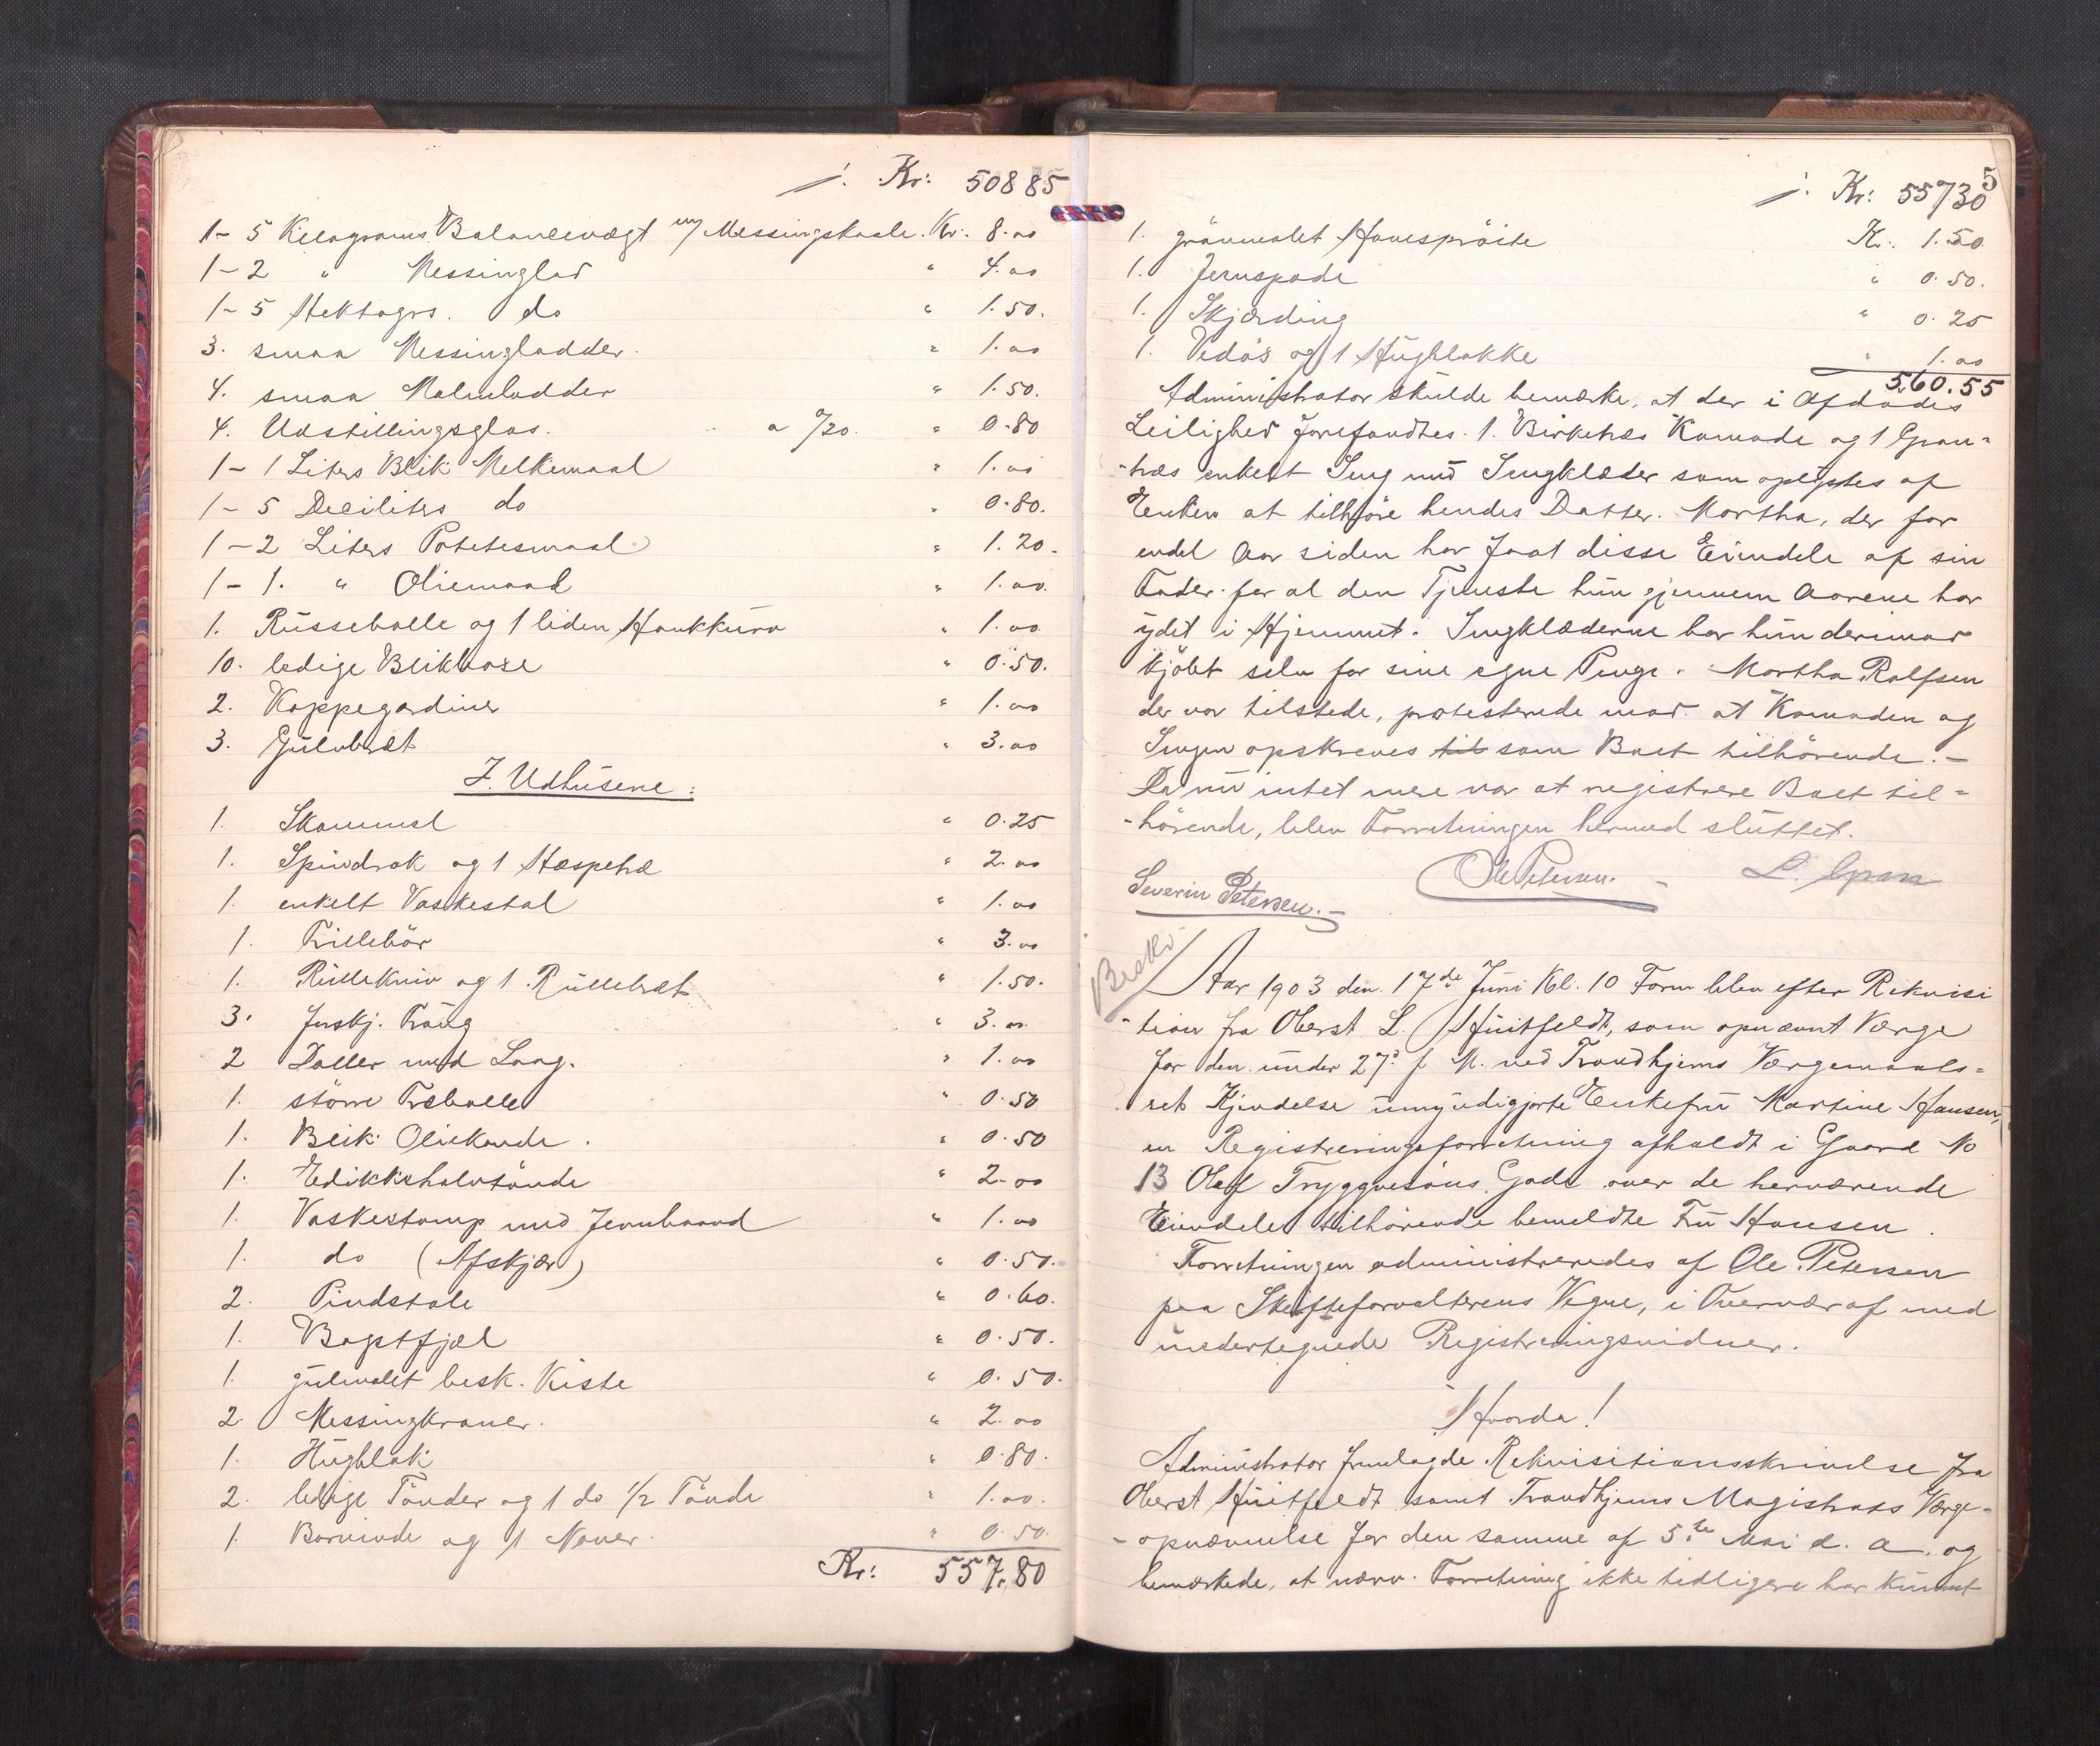 Kr: 508 85
1- 5 Kilograms Balancevægt m/ Messingskaale. Kr: 8.00
1-2 " Messinglod " 4.00
1-5 Hektogrs. do " 1.50.
3. smaa Messinglodder. " 1.00
4. smaa Malmlodder " 1.50.
4. Udstillingsglas. a 0/20. " 0.80
1-1 Liters Blik Melkemaal " 1.00
1-5 Deciliters do " 0.80.
1-2 Liters Potetesmaal " 1.20.
1-1. " Oliemaal " 1.00.
1. Russebolle og 1 liden Hankkurv " 1.00
10. ledige Blikbokse " 0.50.
2. Kappegardiner " 1.00
3. Gulvbræt " 3.00
I. Udhusene:
1. Skammel " 0.25
1. Spindrok og 1 Haspetræ " 2.00
1. enkelt Vaskestol " 1.00
1. Trillebör " 3.00
1. Rullekniv og 1 Rullebræt " 1.50.
3. forskj. Traug " 3.00
2 Daller med Laag. " 1.00
1. större Træbolle " 0.50
1. Blik Oliekande. " 0.50
1. Edikkshalvtönde " 2.00
1. Vaskestamp med Jernbaand " 1.00
1. do (Afskjær) " 0.50.
2. Pindstole " 0.60.
1. Bagstfjæl " 0.50.
1. gulmalet besk. Kiste " 0.50.
2. Messingkraner. " 2.00
1. Hugblok " 0.80.
2. ledige Tönder og 1 do 1/2 Tönde " 1.00.
1. Borvinde og 1 Naver. " 0.50.
Kr: 557,80
5
Kr: 557 30
1. grönmalet Havespröite Kr. 1.50.
1. Jernspade " 0.50.
1. Skjærding " 0.25
1. Vedös og 1 Hugblokke " 1.00
560.55
Administrator skulde bemærke, at der i Afdödes
Leilighed forefandtes 1. Birketræs Komode og 1 Gran=
-træs enkelt Seng med Sengklæder som oplystes af
Enken at tilhöre hendes Datter. Martha, der for
endel Aar siden har faat disse Eiendele af sin
Fader for al den Tjeneste hun gjennem Aarene har
ydet i Hjemmet. Sengklæderne har hun derimod
kjöbt selv for sine egne Penge. Martha Rolfsen
der var tilstede, protesterede mod at Komoden og
Sengen opskreves til som Boet tilhörende.-
Da nu intet mere var at registrere Boet til=
-hörende, blev Forretningen hermed sluttet.
Severin Petersen.- Ole Petersen. L. Gran
Beskr.
Aar 1903 den 17de Juni Kl. 10 Form blev efter Rekvisi
-tion fra Oberst L. Huitfeldt, som opnævnt Værge
for den under 27d f. M. ved Trondhjems Værgemaals=
ret Kjendelse umyndigjorte Enkefru Martine Hansen,
en Registreringsforretning afholdt i Gaard No
13 Olaf Tryggvesöns Gade over de herværende
Eiendele tilhörende bemeldte Fru Hansen.
Forretningen administreredes af Ole Petersen
paa Skifteforvalterens Vegne, i Overvær af med
undertegnede Registreringsvidner.
Hvorda!
Administrator fremlagde Rekvisitionsskrivelse fra
Oberst Huitfeldt samt Trondhjems Magistrats Værge-
-opnævnelse for den samme af 5te Mai d. A. og
bemærkede, at nærv. Forretning ikke tidligere har kunnet